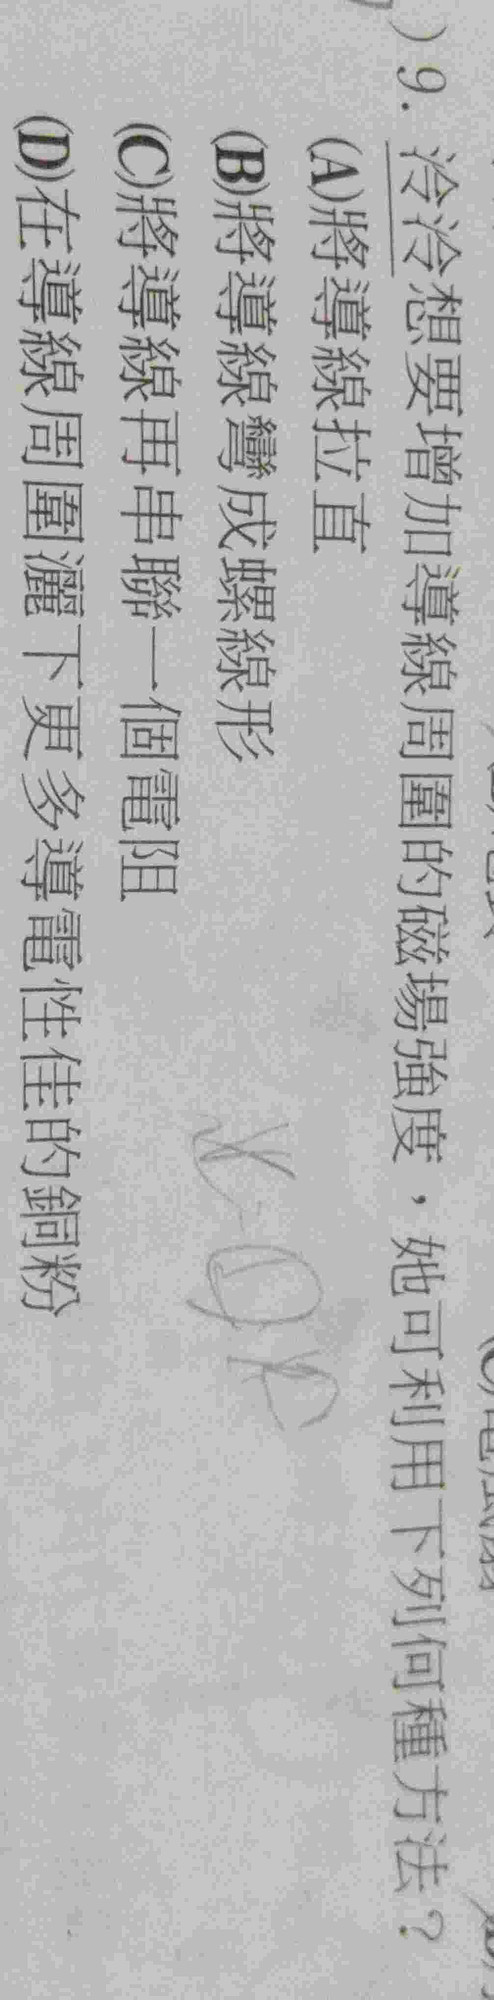 )9. 泠泠想要增加導線周圍的磁場強度，她可利用下列何種方法？
(A)將導線拉直
(B)將導線彎成螺線形
(C)將導線再串聯一個電阻
(D)在導線周圍灑下更多導電性佳的銅粉